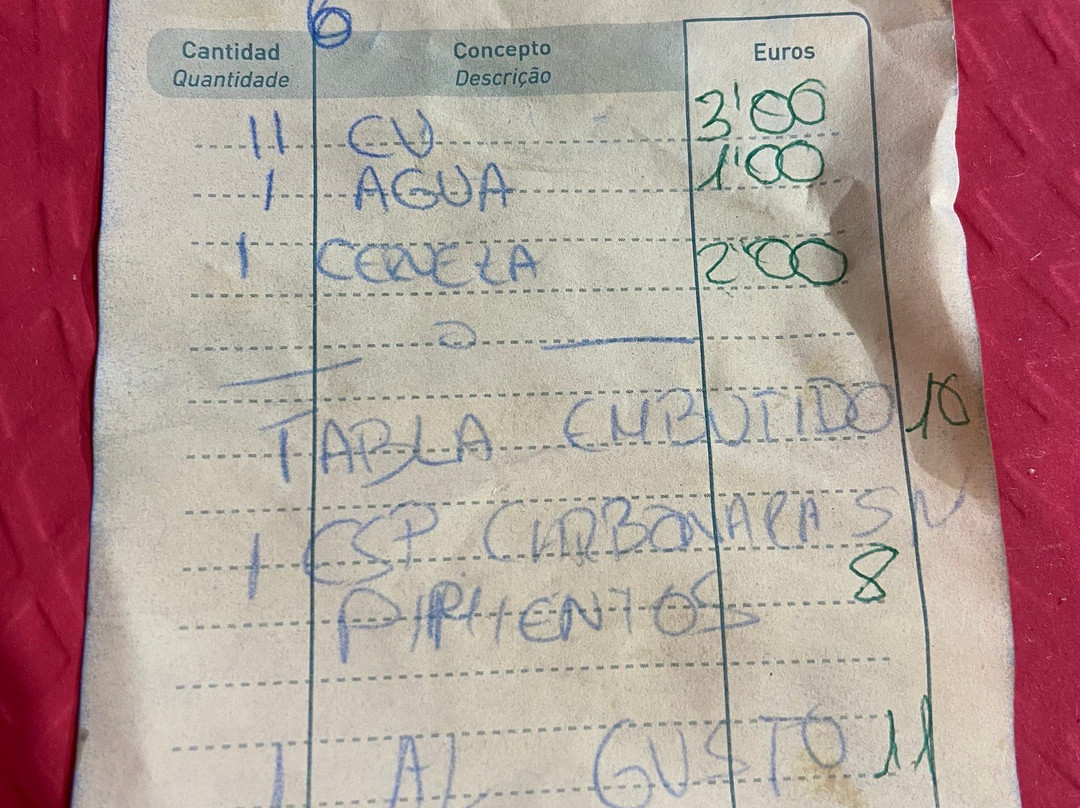 6
Cantidad Concepto Euros
Quantidade Descrição
11 CV 3'00
1 AGUA 1'00
1 CERVEZA 2'00
TABLA EMBUTIDO 16
1 ESP CARBONARA SN
PIMIENTOS 8
1 AL GUSTO 11